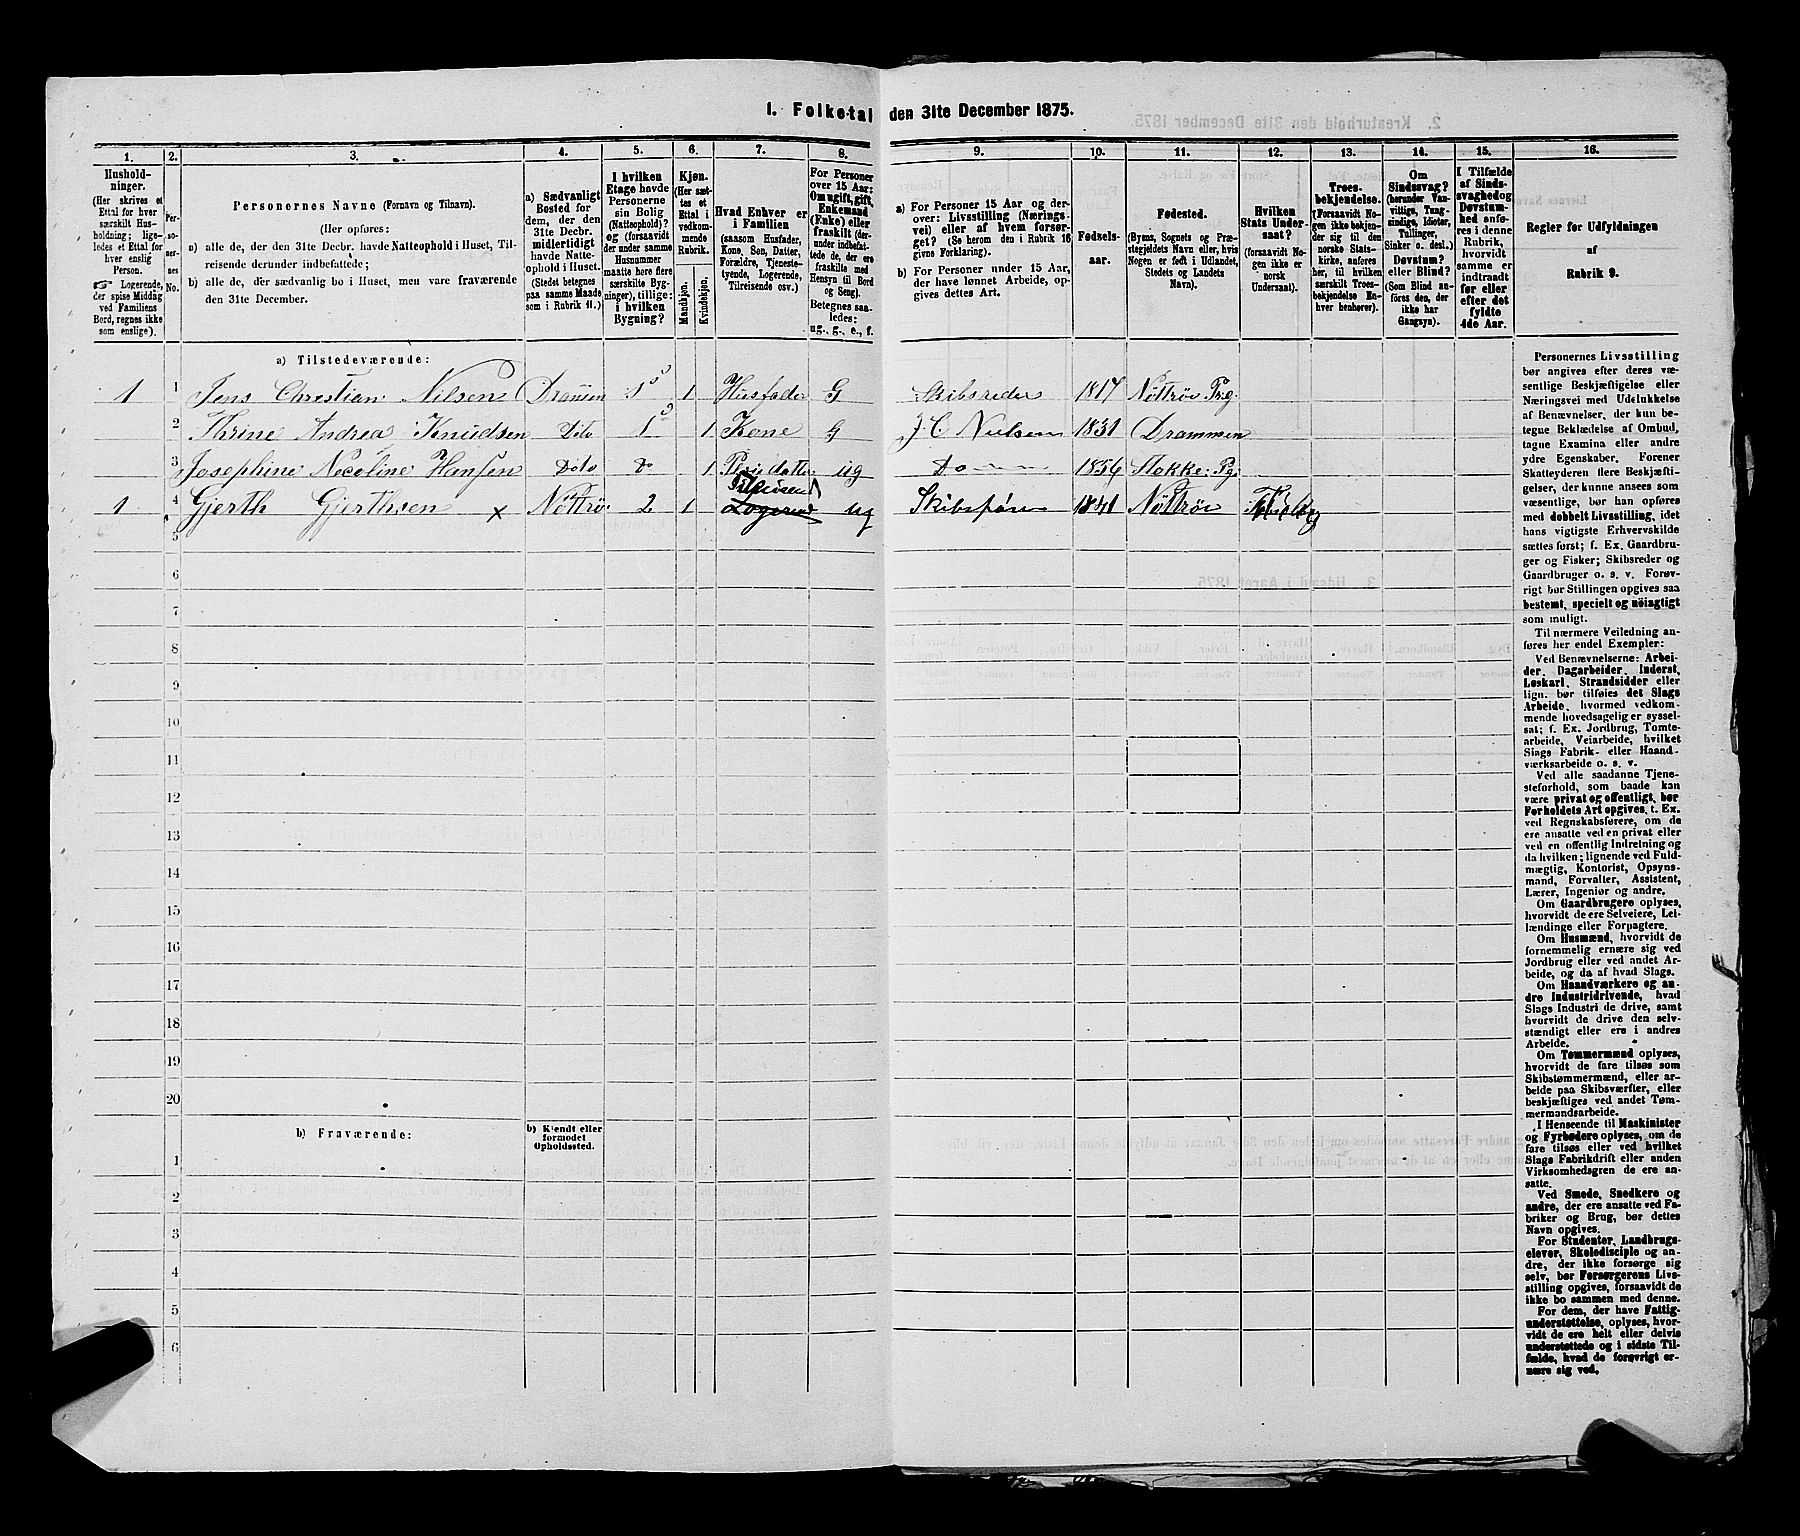 1. Folketal den 31te December 1875.
1. 2. 3. 4. 5. 6. 7. 8. 9. 10. 11. 12. 13. 14. 15. 16.
Hushold-
ninger.
(Her skrives et
Ettal for hver
særskilt Hus-
holdning; lige-
ledes et Ettal for
hver enslig
Person.
☞ Logerende,
der spise Middag
ved Familiens
Bord, regnes ikke
som enslige).
Per-
so-
ner-
nes
No.
Personernes Navne (Fornavn og Tilnavn).
(Her opføres:
a) alle de, der den 31te Decbr. havde Natteophold i Huset, Til-
reisende derunder indbefattede;
b) alle de, der sædvanlig bo i Huset, men vare fraværende
den 31te December.
a) Sædvanligt
Bosted for
dem, der den
31te Decbr.
midlertidigt
havde Natte-
ophold i Huset.
(Stedet betegnes
paa samme Maade
som i Rubrik 11.)
I hvilken
Etage havde
Personerne
sin Bolig
(Natteophold)?
og (forsaavidt
der under samme
Husnummer
maatte høre flere
særskilte Byg-
ninger), tillige:
i hvilken
Bygning?
Kjøn.
(Her sæt-
tes et
Ettal i
vedkom-
mende
Rubrik.
Mandkjøn.
Kvindekjøn.
Hvad Enhver er
i Familien
(saasom Husfader,
Kone, Søn, Datter,
Forældre, Tjeneste-
tyende, Logerende,
Tilreisende osv.)
For Personer
over 15 Aar:
Om ugift, gift,
Enkemand
(Enke) eller
fraskilt (der-
under indbefat-
tede de, der ere
fraskilte med
Hensyn til Bord
og Seng).
Betegnes saa-
ledes:
ug., g., e., f.
a) For Personer over 15 Aar og der-
over: Livsstilling (Nærings-
vei) eller af hvem forsør-
get? (Se herom den i Rubrik 16
givne Forklaring).
b) For Personer under 15 Aar,
der have lønnet Arbeide, op-
gives dettes Art.
Fødsels-
aar.
Fødested.
(Byens, Sognets og Præ-
stegjeldets Navn eller, hvis
Nogen er født i Udlandet,
Stedets og Landets
Navn).
Hvilken
Stats Under-
saat?
(forsaavidt No-
gen ikke er
norsk
Undersaat).
Troes-
bekjendelse.
(Forsaavidt No-
gen ikke bekjen-
der sig til den
norske Stats-
kirke, anføres
her, til hvilken
særskilt Troes-
bekjendelse En-
hver henhører).
Om
Sindssvag?
(herunder Van-
vittige, Tung-
sindige, Idioter,
Tullinger,
Sinker o. desl.)
Døvstum?
eller Blind?
(Som Blind an-
føres den, der
ikke har
Gangsyn).
I Tilfælde
af Sinds-
svaghed og
Døvstum-
hed anfø-
res i denne
Rubrik,
hvorvidt
samme er
indtraadt
før eller
efter det
fyldte
4de Aar.
Regler for Udfyldningen
af
Rubrik 9.
a) Tilstedeværende:
1 1 Jens Christian Nilsen Drammen 1 1 Husfader G Skibsreder 1817 Nøttrø Prg.
2 Thrine Andrea Knudsen Dito 1 1 Kone G J C Nielsen 1831 Drammen
3 Josephine Nicoline Hansen Dito Do 1 ug Do 1856 Stokke Pg.
Tilreisend
1 4 Gjerth Gjerthsen x Nøttrø 2 1 Logerend ug Skibsfører 1841 Nøttrø
5
6
7
8
9
10
11
12
13
14
15
16
17
18
19
20
b) Fraværende:
b) Kjendt eller
formodet
Opholdssted.
1
2
3
4
5
6
Personernes Livsstilling
bør angives efter deres væ-
sentlige Beskjæftigelse eller
Næringsvei med Udelukkelse
af Benævnelser, der kun be-
tegne Beklædelse af Ombud,
tagne Examina eller andre
ydre Egenskaber. Forener
Skatteyderen flere Beskjæfti-
gelser, der kunne ansees som
væsentlige, bør han opføres
med dobbelt Livsstilling, idet
hans vigtigste Erhvervskilde
sættes først; f. Ex. Gaardbru-
ger og Fisker; Skibsreder og
Gaardbruger o. s. v. Forøv-
rigt bør Stillingen opgives saa
bestemt, specielt og nöiagtigt
som muligt.
Til nærmere Veiledning an-
føres her endel Exempler:
Ved Benævnelserne: Arbei-
der, Dagarbeider, Inderst,
Løskarl, Strandsidder eller
lign. bør tilføies det Slags
Arbeide, hvormed vedkom-
mende hovedsagelig er syssel-
sat; f. Ex. Jordbrug, Tomte-
arbeide, Veiarbeide, hvilket
Slags Fabrik- eller Haand-
værksarbeide o. s. v.
Ved alle saadanne Tjene-
steforhold, som baade kan
være privat og offentligt, bør
Forholdets Art opgives, t. Ex.
ved Regnskabsførere, om de
ere ansatte ved en privat eller
ved en offentlig Indretning og
da hvilken; lignende ved Fuld-
mægtig, Kontorist, Opsyns-
mand, Forvalter, Assistent,
Lærer, Ingeniør og andre.
Om Gaardbrugere oplyses,
hvorvidt de ere Selveiere, Lei-
lændinge eller Forpagtere.
Om Husmænd, hvorvidt de
fornemmelig ernære sig ved
Jordbrug eller ved andet Ar-
beide, og da af hvad Slags.
Om Haandværkere og an-
dre Industridrivende, hvad
Slags Industri de drive, samt
hvorvidt de drive den selv-
stændigt eller ere i andres
Arbeide.
Om Tømmermænd oplyses,
hvorvidt de fare tilsøs som
Skibstømmermænd, eller ar-
beide paa Skibsværfter, eller
beskjæftiges ved andet Tøm-
mermandsarbeide.
I Henseende til Maskinister
og Fyrbødere oplyses, om de
fare tilsøs eller ved hvilket
Slags Fabrikdrift eller anden
Virksomhedsgren de ere an-
satte.
Ved Smede, Snedkere og
andre, der ere ansatte ved Fa-
briker og Brug, bør dettes
Navn opgives.
For Studenter, Landbrugs-
elever, Skoledisciple og an-
dre, der ikke forsørge sig
selv, bør Forsørgerens Livs-
stilling opgives, forsaavidt de
ikke bo sammen med denne.
For dem, der have Fattig-
understøttelse, oplyses, hvor-
vidt de ere helt eller delvis
understøttede og i sidste Til-
fælde, hvad de forøvrigt er-
nære sig ved.